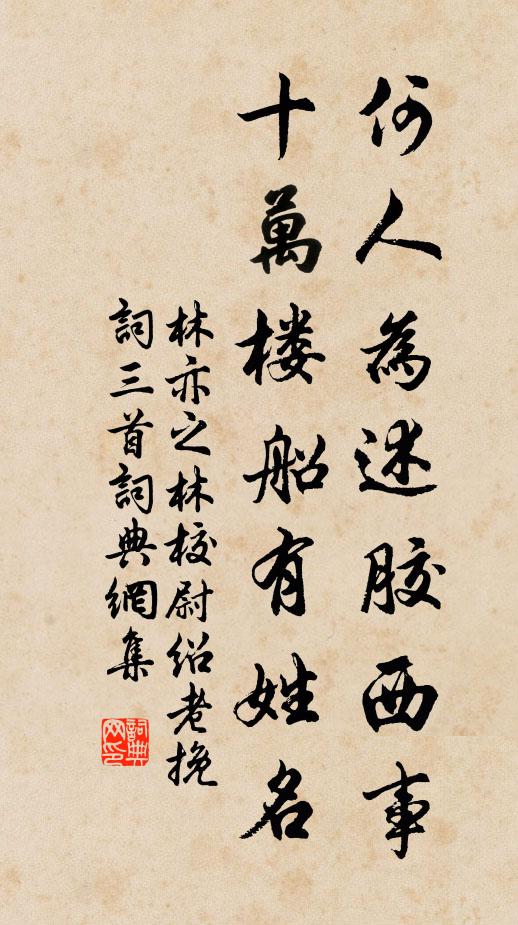 何人為述胶西事
十萬楼船有姓名
林亦之林校尉绍老挽
詞三首詞典網集
詞典網印